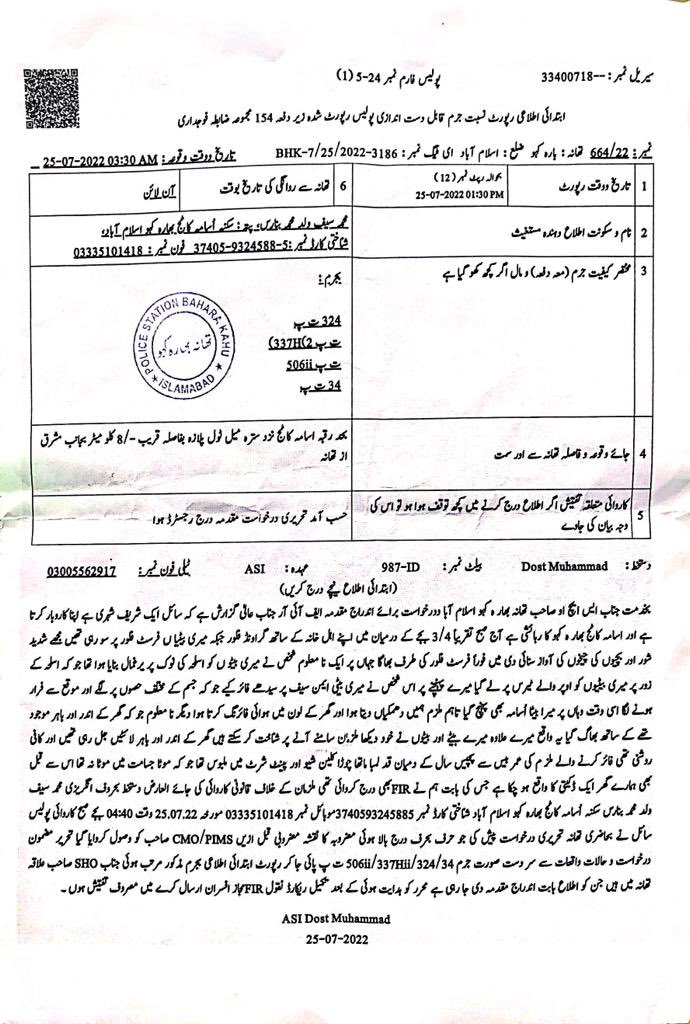 سیریل نمبر :--33400718
پولیس فارم نمبر 24-5 (1)
ابتدائی اطلاعی رپورٹ نسبت جرم قابل دست اندازی پولیس رپورٹ شدہ زیر دفعہ 154 مجموعہ ضابطہ فوجداری
نمبر: 664/22 تھانہ: بارہ کہو ضلع: اسلام آباد ای ٹیگ نمبر: BHK-7/25/2022-3186 تاریخ ووقت وقوعہ: 25-07-2022 03:30 AM
1 تاریخ ووقت رپورٹ بحوالہ رپٹ نمبر (12) 25-07-2022 01:30 PM
6 تھانہ سے روانگی کی تاریخ بوقت آن لائن
2 نام و سکونت اطلاع دہندہ مستغیث
محمد سیف ولد محمد بنارس، پتہ: سکنہ اسامہ کاٹیج بھارہ کہو اسلام آباد،
شناختی کارڈ نمبر: 37405-9324588-5 فون نمبر: 03335101418
3 مختصر کیفیت جرم (معہ دفعہ) و مال اگر کچھ کھو گیا ہے
بجرم:
324 ت پ
337H(2) ت پ
506ii ت پ
34 ت پ
POLICE STATION BAHARA KAHU
تھانہ بھارہ کہو
ISLAMABAD
4 جائے وقوعہ و فاصلہ تھانہ سے اور سمت
بحد رقبہ اسامہ کاٹیج نزد سترہ میل ٹول پلازہ بفاصلہ قریب -/8 کلو میٹر بجانب مشرق
از تھانہ
5 کاروائی متعلقہ تفتیش اگر اطلاع درج کرنے میں کچھ توقف ہوا ہو تو اس کی
وجہ بیان کی جاوے
حسب آمد تحریری درخواست مقدمہ درج رجسٹرڈ ہوا
دستخط: Dost Muhammad بیلٹ نمبر: 987-ID عہدہ: ASI ٹیلی فون نمبر: 03005562917
(ابتدائی اطلاع نیچے درج کریں)
بخدمت جناب ایس ایچ او صاحب تھانہ بھارہ کہو اسلام آباد درخواست برائے اندراج مقدمہ ایف آئی آر جناب عالی گزارش ہے کہ سائل ایک شریف شہری ہے اپنا کاروبار کرتا
ہے اور اسامہ کاٹیج بھارہ کہو کا رہائشی ہے آج صبح تقریباً 3/4 بجے کے درمیان میں اپنے اہل خانہ کے ساتھ گراونڈ فلور جبکہ میری بیٹیاں فرسٹ فلور پر سو رہی تھیں مجھے شدید
شور اور بچیوں کی چیخوں کی آواز سنائی دی میں فوراً فرسٹ فلور کی طرف بھاگا جہاں پر ایک نا معلوم شخص نے میری بیٹیوں کو اسلحہ کی نوک پر یرغمال بنایا ہوا تھا جو کہ اسلحہ کے
زور پر میری بیٹیوں کو اوپر والے ٹیرس پر لے گیا میرے پہنچنے پر اس شخص نے میری بیٹی ایمن سیف پر سیدھے فائر کیے جو کہ جسم کے مختلف حصوں پر لگے اور موقع سے فرار
ہونے لگا اسی وقت وہاں پر میرا بیٹا اسامہ بھی پہنچ گیا تاہم ملزم ہمیں دھمکیاں دیتا ہوا اور گھر کے لون میں ہوائی فائرنگ کرتا ہوا دیگر نا معلوم جو کہ گھر کے اندر اور باہر موجود
تھے کے ساتھ بھاگ گیا یہ واقع میرے علاوہ میرے بیٹے اور بیٹیوں نے خود دیکھا ملزمان سامنے آنے پر شناخت کر سکتے ہیں گھر کے اندر اور باہر لائٹیں جل رہی تھیں اور کافی
روشنی تھی فائر کرنے والے ملزم کی عمر بیس سے پچیس سال کے درمیان قد لمبا باتھا چوڑا کلین شیو اور پینٹ شرٹ میں ملبوس تھا جو کہ موٹا جسامت میں موٹا نہ تھا اس سے قبل
بھی ہمارے گھر ایک ڈکیتی کا واقع ہو چکا ہے جس کی بابت ہم نے FIR بھی درج کروائی تھی ملزمان کے خلاف قانونی کاروائی کی جائے العارض دستخط بحروف انگریزی محمد سیف
ولد محمد بنارس سکنہ اسامہ کاٹیج بھارہ کہو اسلام آباد شناختی کارڈ نمبر 3740593245885 موبائل نمبر 03335101418 مورخہ 25.07.22 وقت 04:40 بجے صبح کاروائی پولیس
سائل نے بحاضری تھانہ تحریری درخواست پیش کی جو حرف بحرف درج بالا ہوئی معزوبہ کا نقشہ معزوبی قبل ازیں CMO/PIMS صاحب کو وصول کروایا گیا تحریر مضمون
درخواست و حالات واقعات سے سر دست صورت جرم 506ii/337Hii/324/34 ت پ پائی جا کر رپورٹ ابتدائی اطلاعی بجرم مذکور مرتب ہوئی جناب SHO صاحب علاقہ
تھانہ میں ہیں جن کو اطلاع بابت اندراج مقدمہ دی جا رہی ہے محرر کو ہدایت ہوئی کے بعد تکمیل ریکارڈ نقول FIR مجاز افسران ارسال کرے میں مصروف تفتیش ہوں۔
ASI Dost Muhammad
25-07-2022